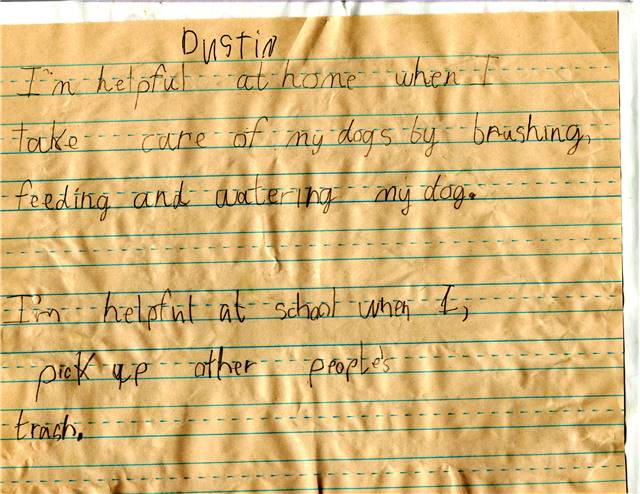 Dustin
I'm helpful at home when I
take care of my dogs by brushing,
feeding and watering my dog.
I'm helpful at school when I,
pick up other people's
trash.